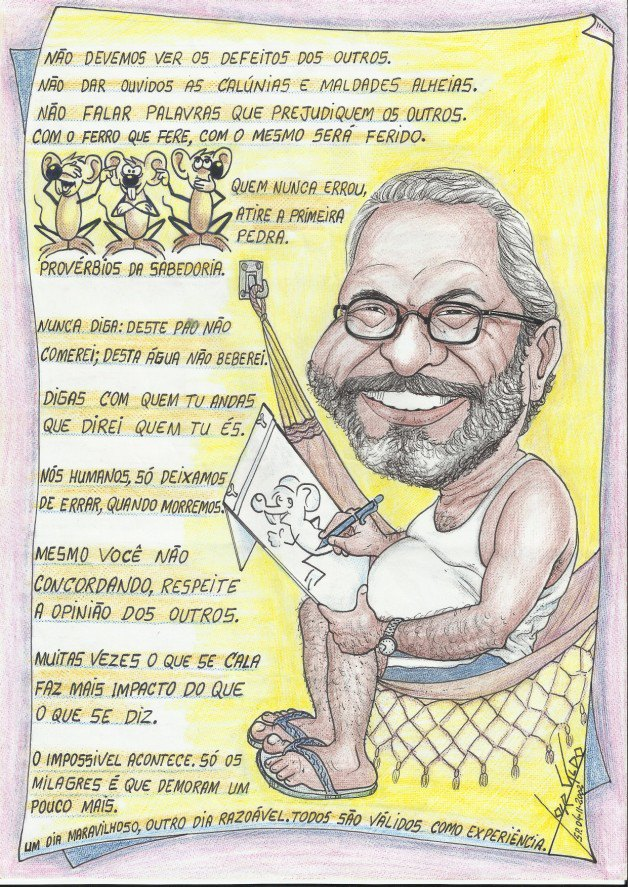 NÃO DEVEMOS VER OS DEFEITOS DOS OUTROS.
NÃO DAR OUVIDOS AS CALÚNIAS E MALDADES ALHEIAS.
NÃO FALAR PALAVRAS QUE PREJUDIQUEM OS OUTROS.
COM O FERRO QUE FERE, COM O MESMO SERÁ FERIDO.
QUEM NUNCA ERROU,
ATIRE A PRIMEIRA
PEDRA.
PROVÉRBIOS DA SABEDORIA.
NUNCA DIGA: DESTE PÃO NÃO
COMEREI; DESTA ÁGUA NÃO BEBEREI.
DIGAS COM QUEM TU ANDAS
QUE DIREI QUEM TU ÉS.
NÓS HUMANOS, SÓ DEIXAMOS
DE ERRAR, QUANDO MORREMOS.
MESMO VOCÊ NÃO
CONCORDANDO, RESPEITE
A OPINIÃO DOS OUTROS.
MUITAS VEZES O QUE SE CALA
FAZ MAIS IMPACTO DO QUE
O QUE SE DIZ.
O IMPOSSIVEL ACONTECE. SÓ OS
MILAGRES É QUE DEMORAM UM
POUCO MAIS.
UM DIA MARAVILHOSO, OUTRO DIA RAZOÁVEL. TODOS SÃO VÁLIDOS COMO EXPERIÊNCIA.